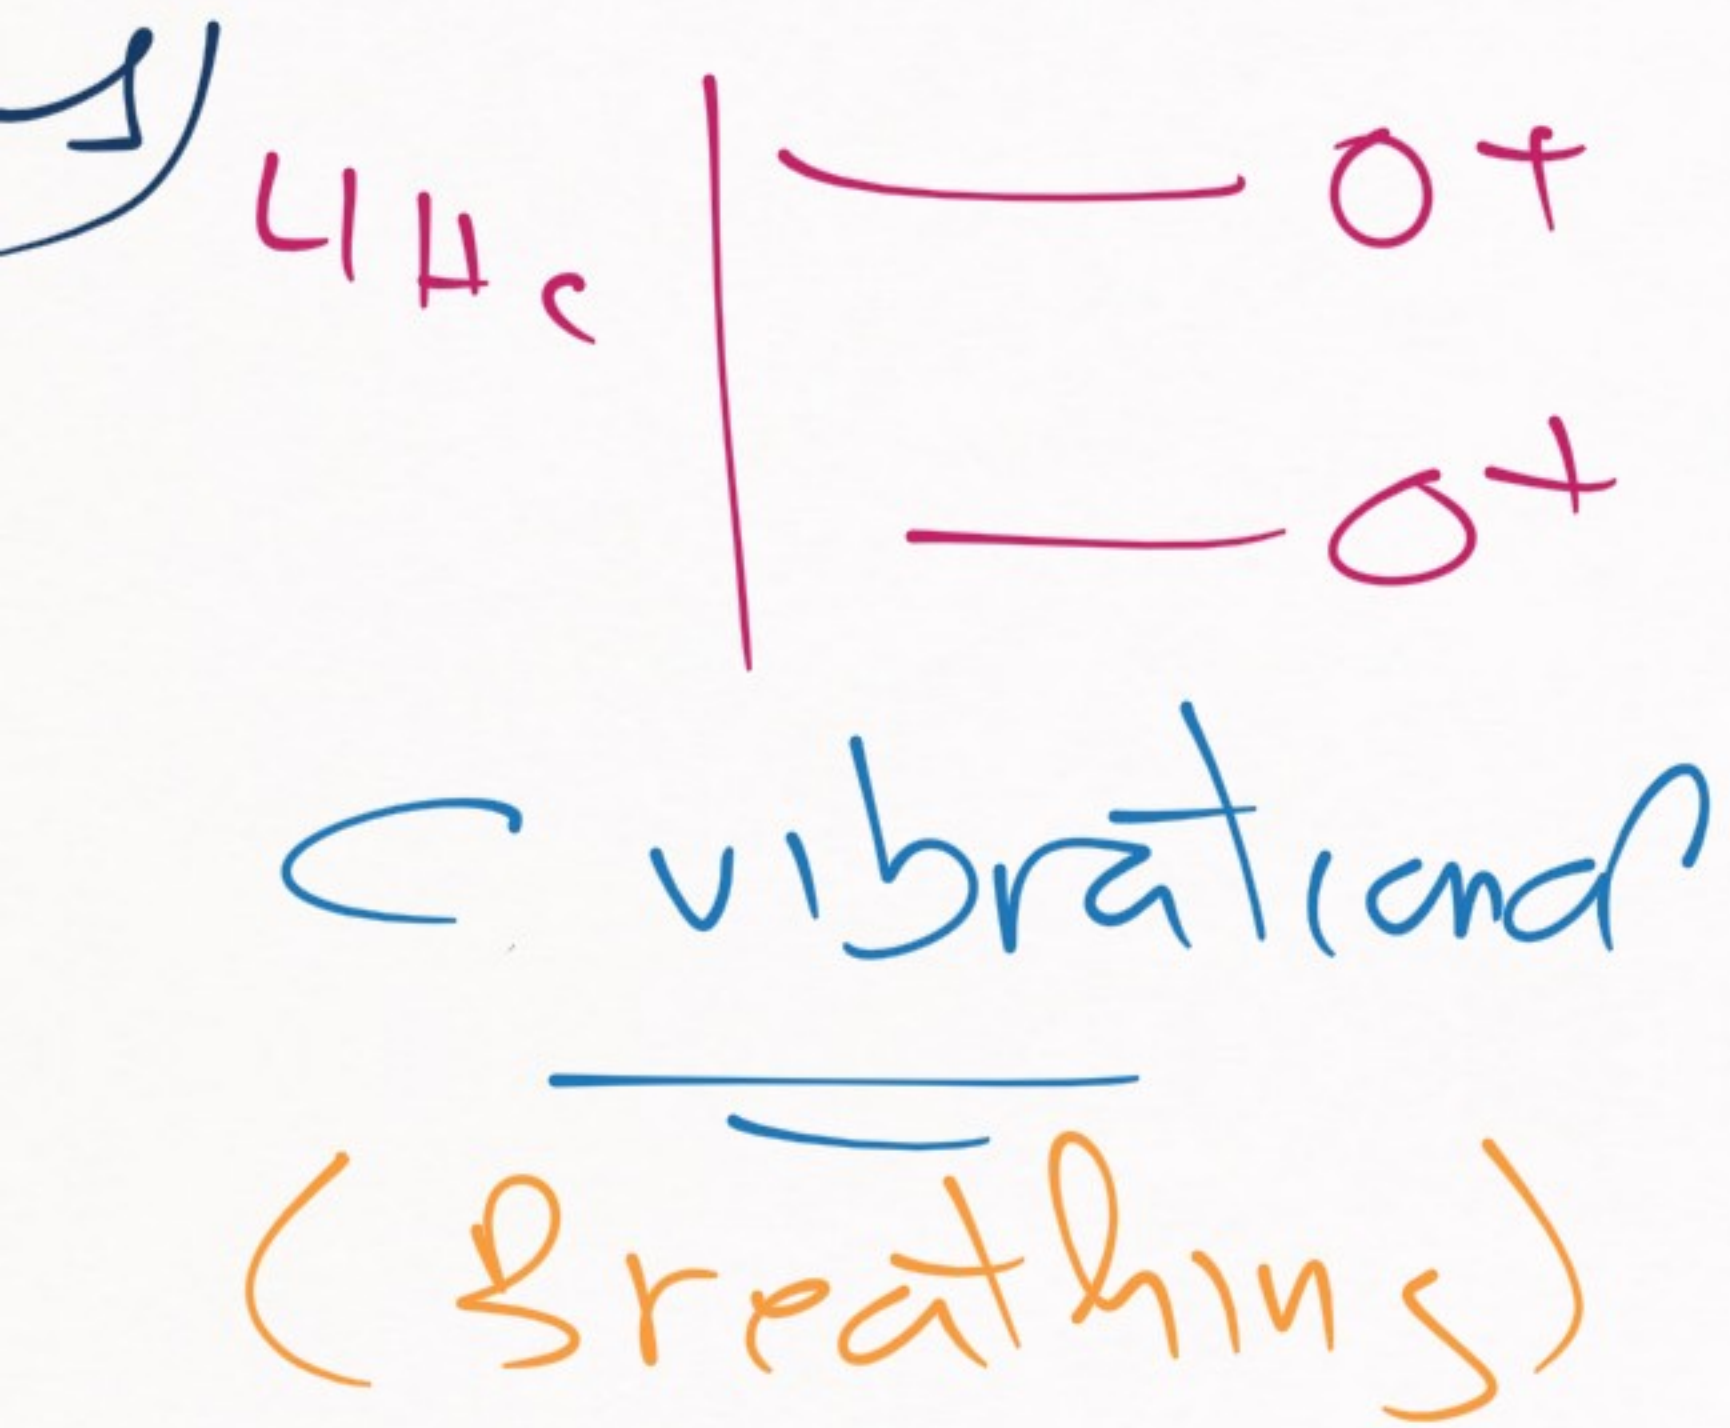 4He 0+
0+
C vibrational
(Breathing)